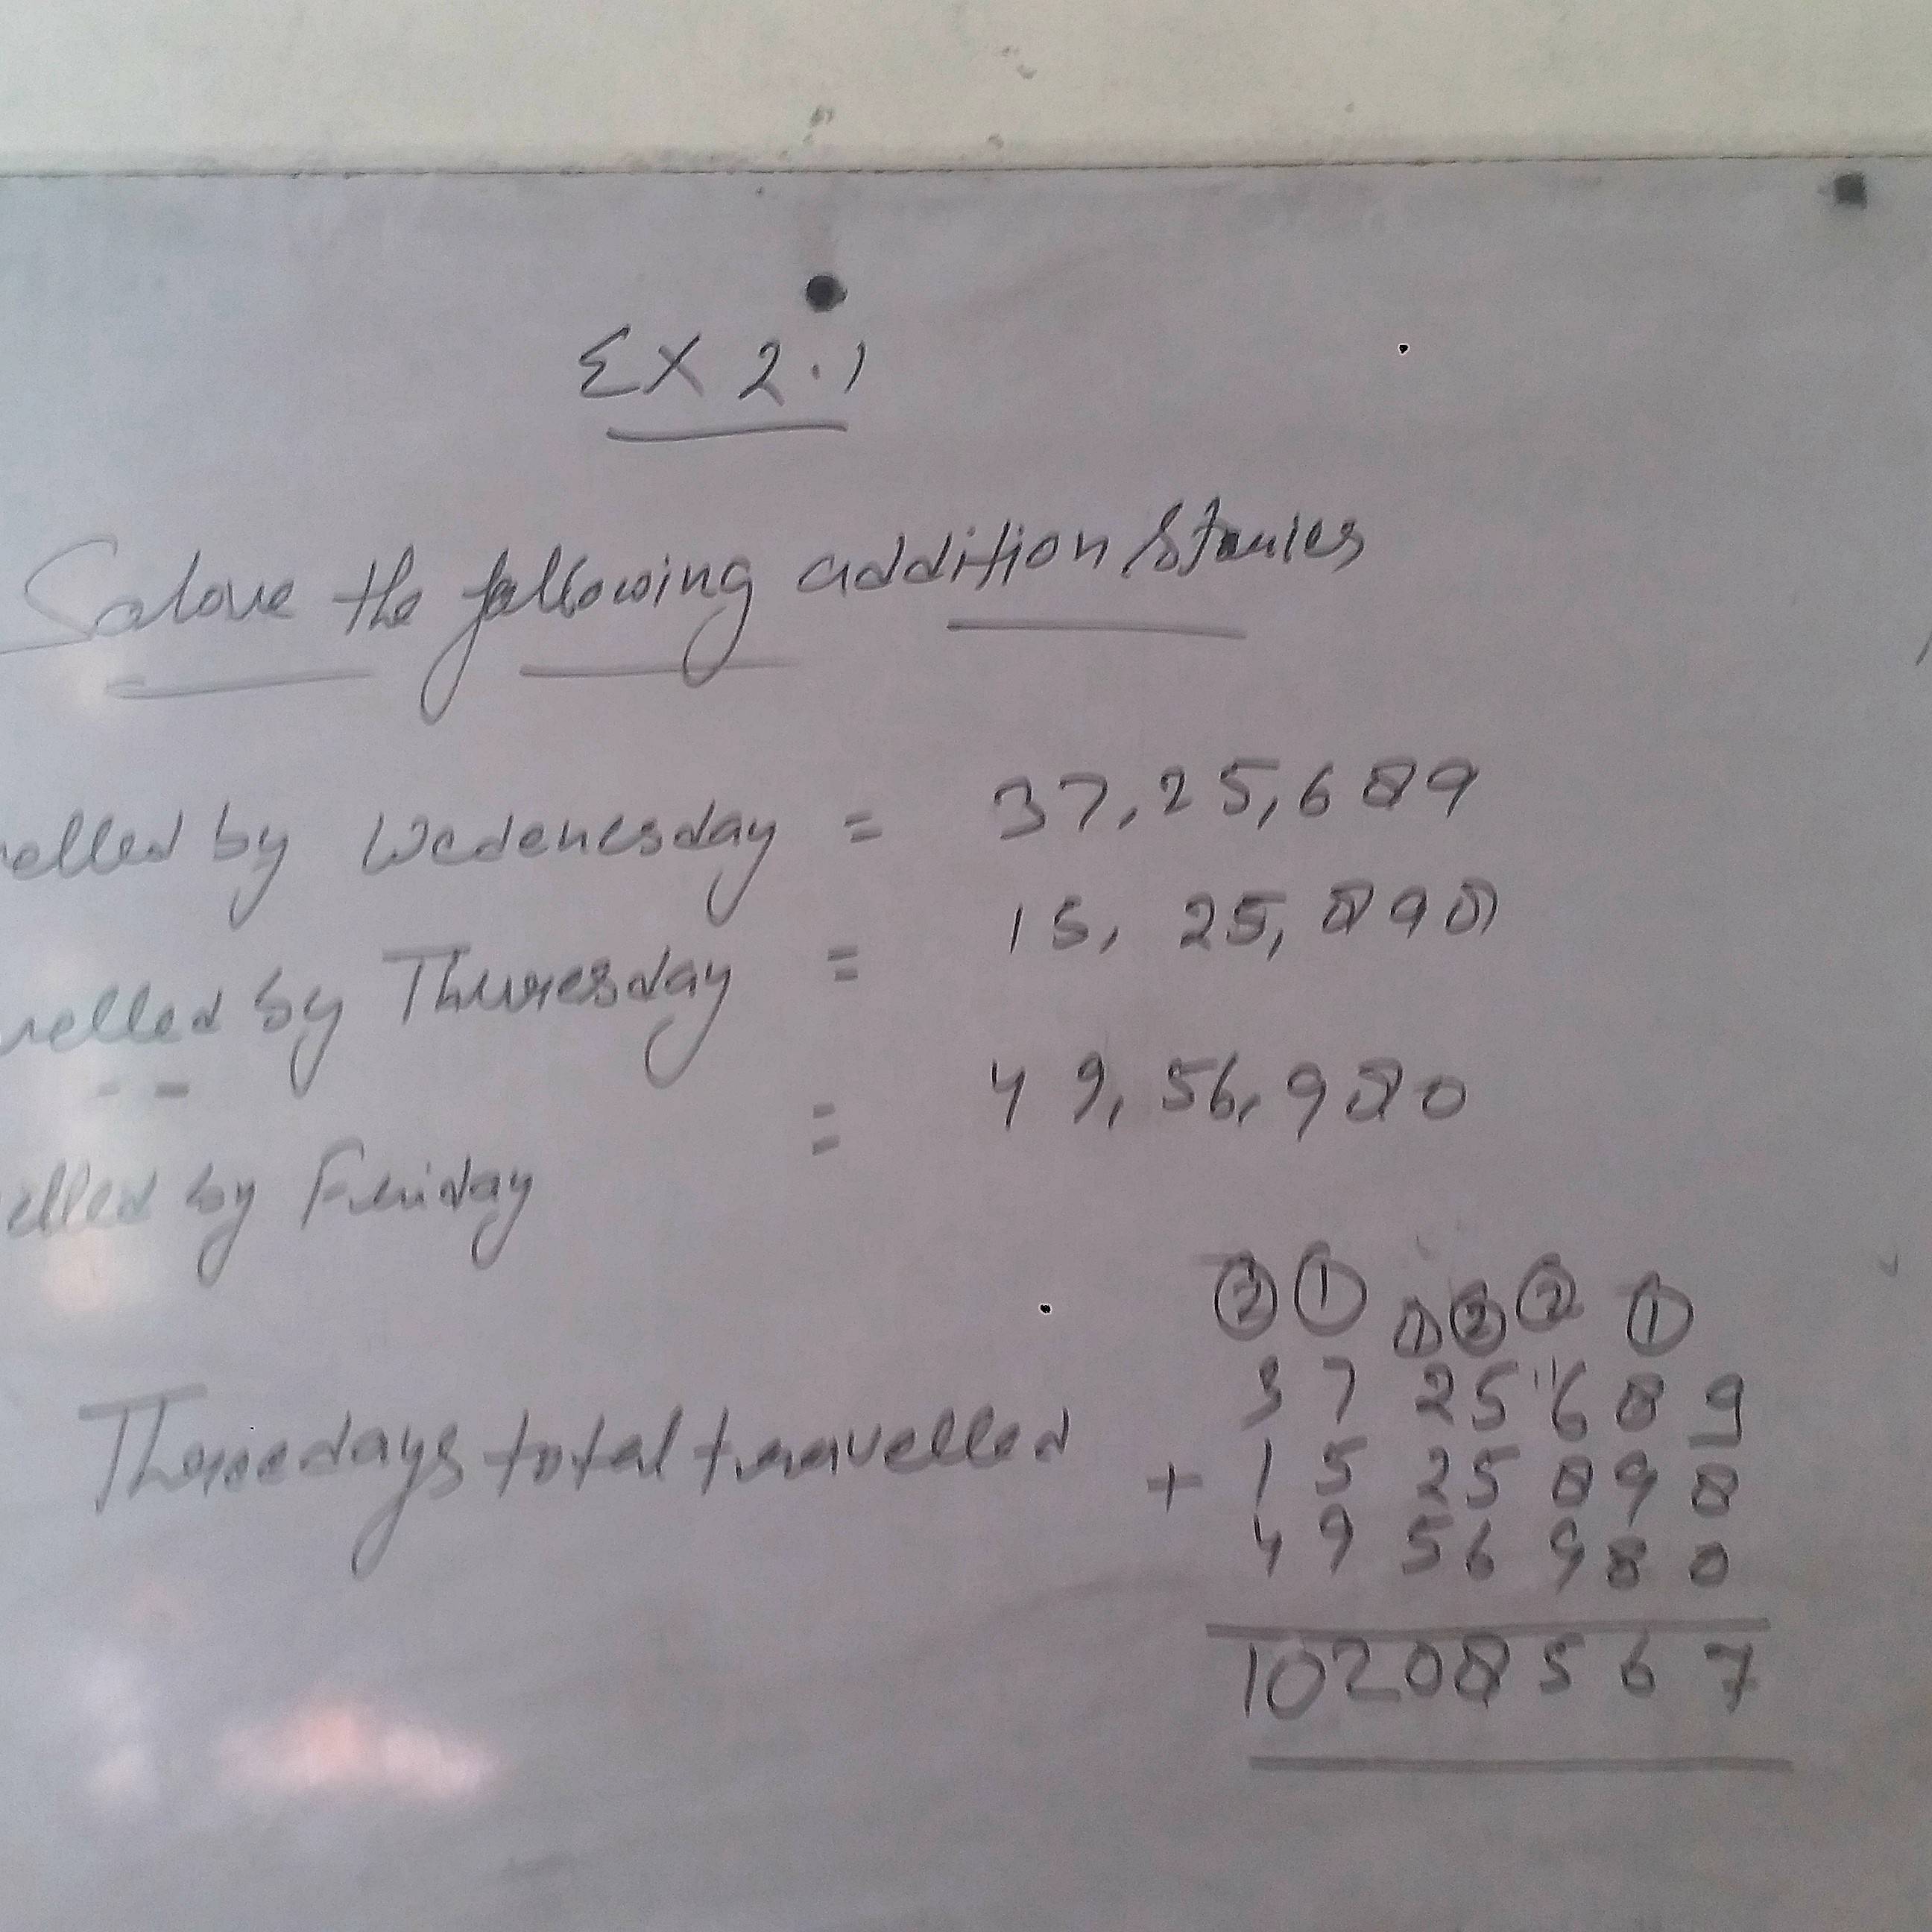 Ex 2.1
Solove the following addition stories
elled by Wedenesday = 37,25,689
velled by Thuresday = 15, 25, 898
elled by Friday = 49, 56, 980
② ① ① ② ② ①
37 25 6 8 9
Threedays total travelled + 1 5 25 8 9 8
4 9 56 9 8 0
10208567